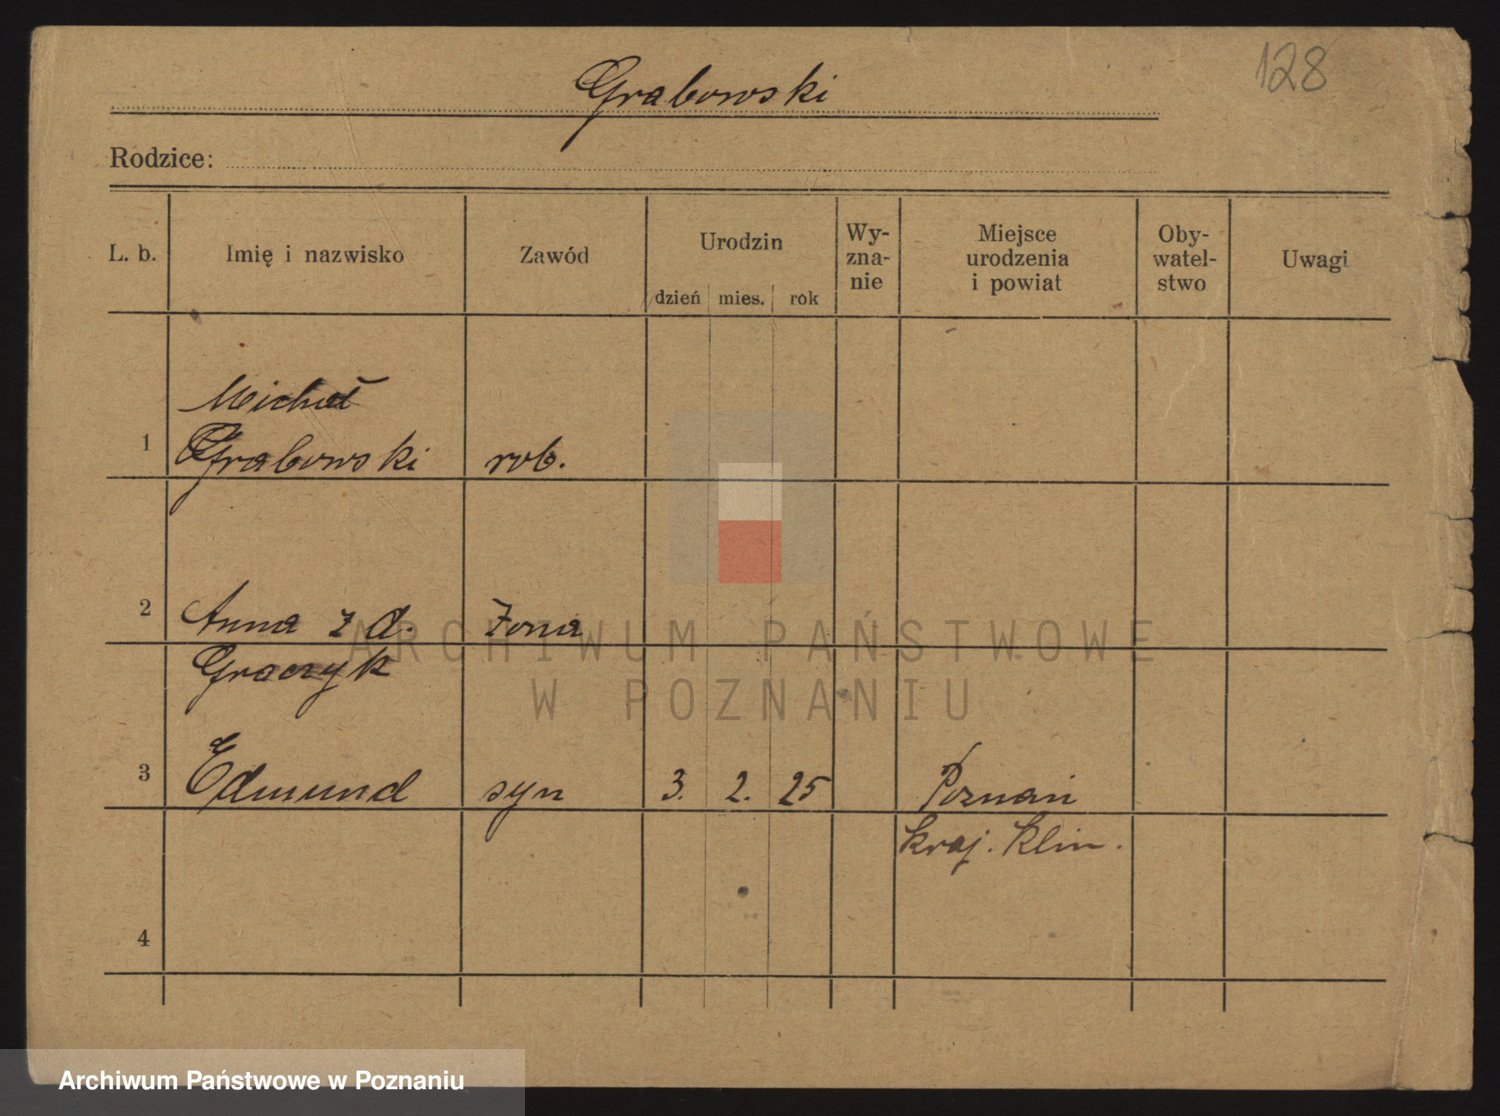 128
Grabowski
Rodzice:
L. b. Imię i nazwisko Zawód Urodzin dzień mies. rok Wy-zna-nie Miejsce urodzenia i powiat Oby-watel-stwo Uwagi
Michał
1 Grabowski rob.
2 Anna z d. żona
Graczyk
3 Edmund syn 3. 2. 25 Poznań
kraj. klin.
4
ARCHIWUM PAŃSTWOWE
W POZNANIU
Archiwum Państwowe w Poznaniu